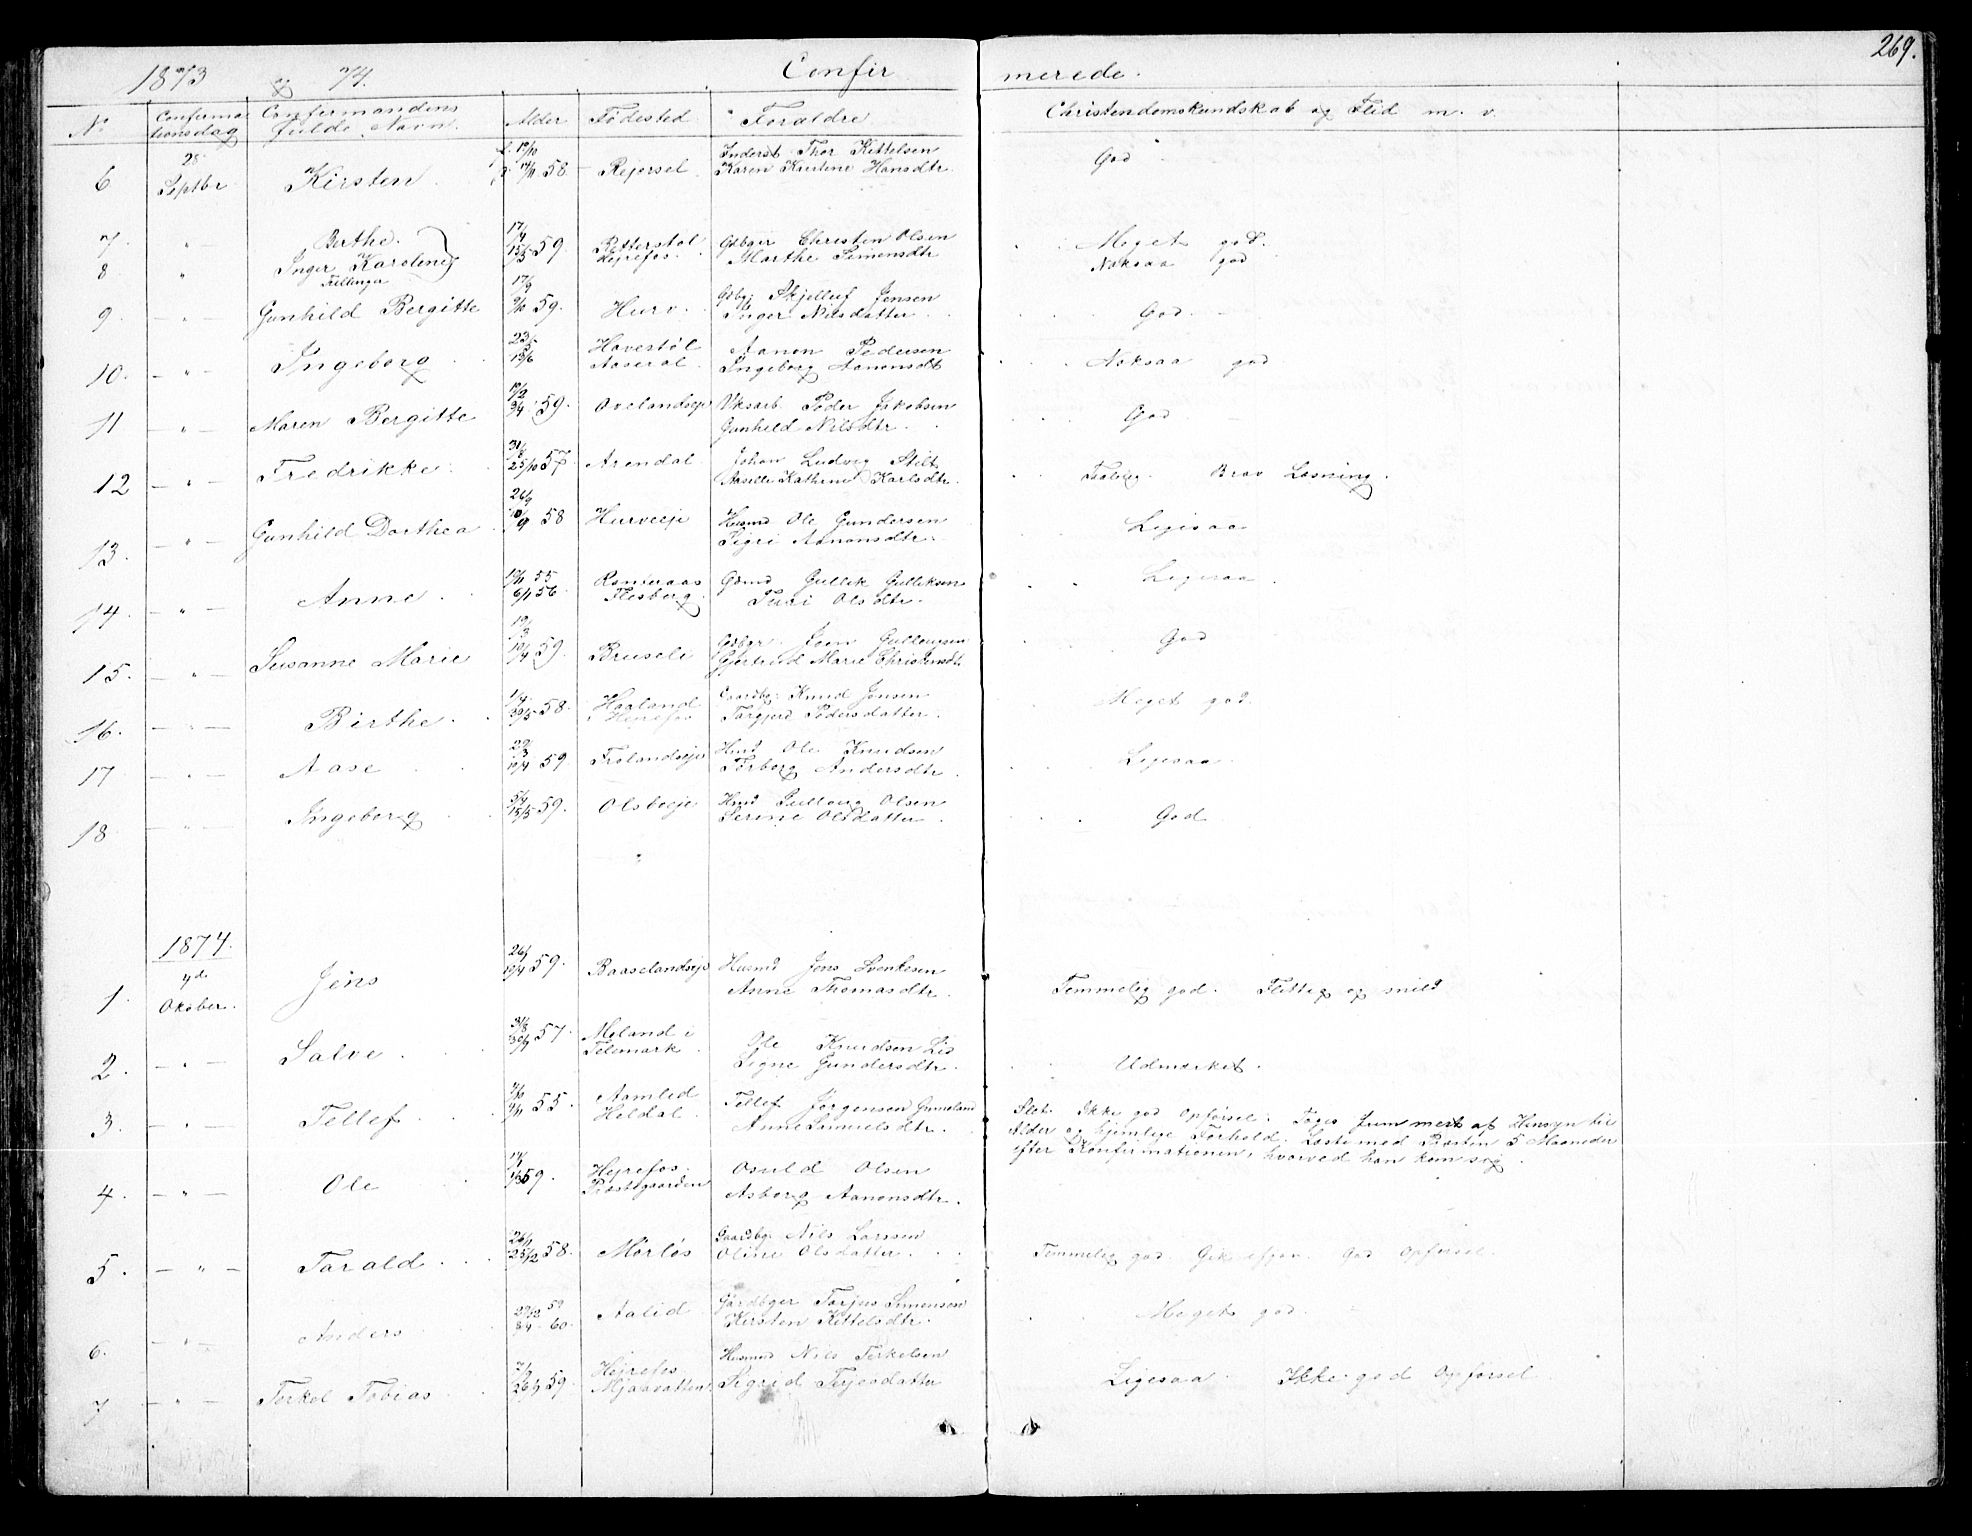 269.
1873 og 74. Confirmerede.
No Confirmationsdag Confermandens fulde Navn. Alder Fødested Forældre Christendomskundskab og Flid m. v.
6 28 Septbr Kirsten 58 Rejersel Inderst Thor Kittelsen
Karen Kirstine Hansdtr. God
7 " Berthe. 17/4 Retterstøl Gdbger Christen Olsen Meget god.
8 " Inger Karoline 15/5 59. Hejrefos. Marthe Simensdtr Noksaa god
Tvillinger
9. " Gunhild Bergitte 17/9 9/10 59. Hurv. Gdbg. Skjelluf Jensen
Inger Nilsdatter. God.
10. " Ingeborg 23/5 13/6 Hovestøl Aaseral. Aanon Pedersen
Ingeborg Aanonsdt Noksaa god
11 " Maren Bergitte 19/2 3/4 59. Ovelandseje Peder Jakobsen
Gunhild Nilsdtr. God
12 " Fredrikke. 25/10 57 Arendal Johan Ludvig
Kathrine Karlsdtr. Brav Læsning.
13. " Gunhild Dorthea 26/9 58 Hurveeje Husmd Ole Gundersen
Sigri Aanonsdtr. Ligesaa
14. " Anne 55 6/1 56. Flesberg. Gdmd Gullik Gulliksen
Turi Olsdtr. Ligesaa.
15. " Susanne Marie 19/3 59. Bruseli Gdbgr Jom
Gjertrud Marie Christensdt. God
16. " Birthe. 1/4 58. Haaland Hejrefos Gaardbg: Knud Jensen
Targjerd Pedersdatter. Meget god.
17 " Aase 29/3 59 Frolandseje Hmd Ole Knudsen
Torborg Andersdtr. Ligesaa.
18 " Ingeborg 5/4 15/5 59. Olsbeeje Hmd Olsen
Serine Olsdatter. God
1874.
1. 4d. Oktober. Jens 26/1 59. Baaselandseje Husmd Jens
Anne Thomasdtr. Temmelig god. Flittig og snild
2. " Salve 31/8 57. Moland i Telemark. Ole Knudsen Lid
Signe Gundersdtr. Udmærket.
3. " Tellef 55. Aamlid Holdal. Tellef Jørgensen
Anne Samuelsdtr. Slet. Ikke god Opførsel. Toges med af Hensyn til
Alder og hjemlige Forhold. Læste med Præsten 5 Maaneder
efter Konfirmationen, hvorved han kom sig.
4. " Ole 59. Hejrefos. Præstegaarden Osuld Olsen
Asborg Aanonsdtr.
5. " Tarald 26/11 25/12 58. Mørløs Gaardbg: Nils Larssen
Oline Olsdatter. Temmelig god. God Opførsel.
6. " Anders 29/12 59 60. Aalid Gårdbger Tarjus Simensen
Kirsten Kittelsdtr. Meget god.
7 " Terkel Tobias 59. Hejrefos. Mjaavatten Husmd Nils Terkelsen
Sigrid Terjesdatter Ligesaa. Ikke god Opførsel